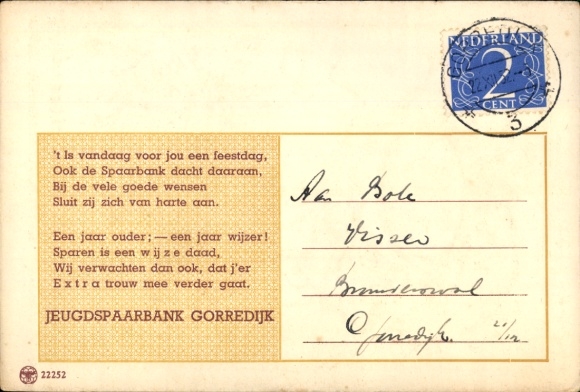 NEDERLAND
2
CENT
3
't Is vandaag voor jou een feestdag,
Ook de Spaarbank dacht daaraan,
Bij de vele goede wensen
Sluit zij zich van harte aan.
Een jaar ouder; — een jaar wijzer!
Sparen is een wijze daad,
Wij verwachten dan ook, dat j'er
Extra trouw mee verder gaat.
JEUGDSPAARBANK GORREDIJK
22252
Aan
Visser
Gorredijk 21/12